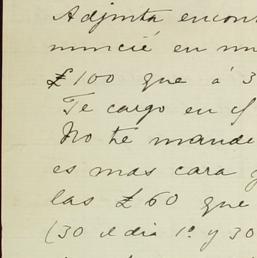 Adjunta encont
nuncié en mi
£100 que á 3
Te cargo en c/
No te mande
es mas cara y
las £60 que
(30 el dia 1º y 30